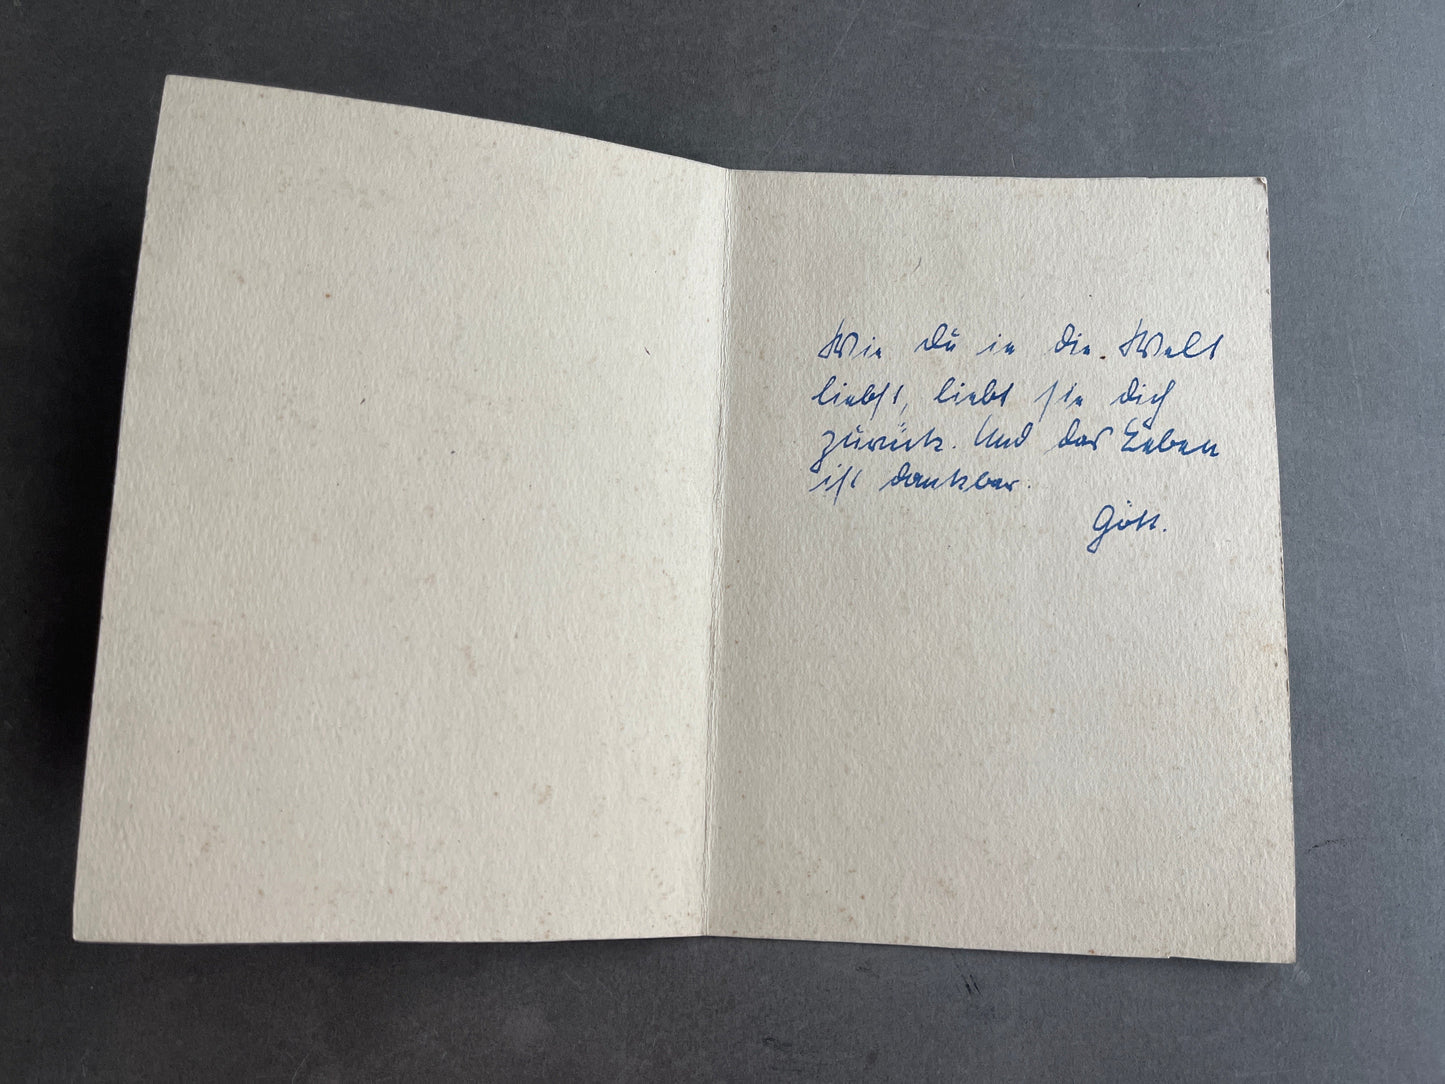 Wie du in die Welt
liebst, liebt sie dich
zurück. Und das Leben
ist dankbar.